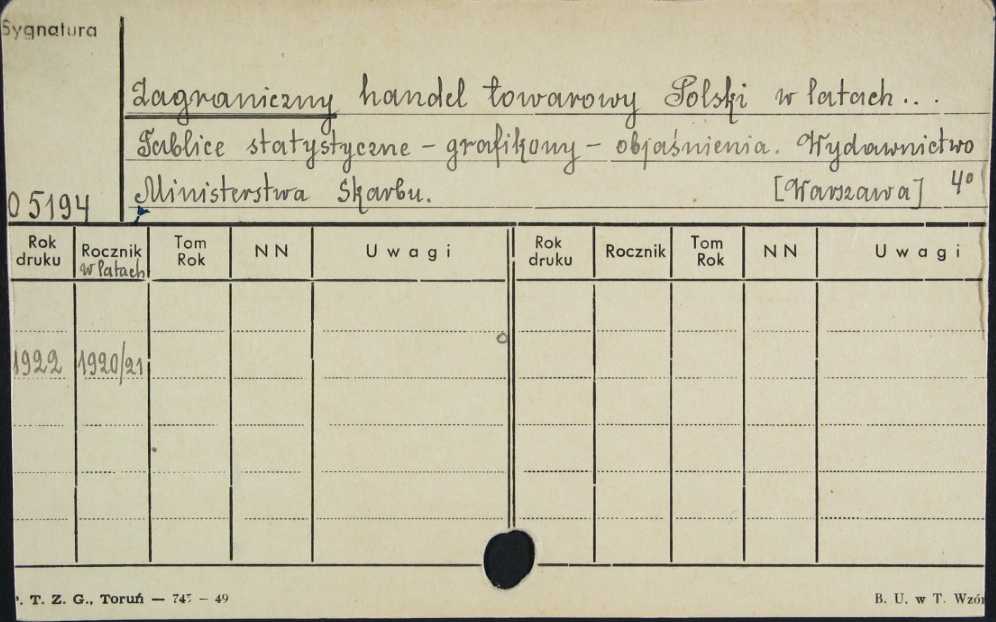 Sygnatura
Zagraniczny handel towarowy Polski w latach...
Tablice statystyczne - grafikony - objaśnienia. Wydawnictwo
Ministerstwa Skarbu. [Warszawa] 4°
05194
Rok druku Rocznik w latach Tom Rok NN Uwagi Rok druku Rocznik Tom Rok NN Uwagi
1922 1920/21
. T. Z. G., Toruń — 747 — 49 B. U. w T. Wzór